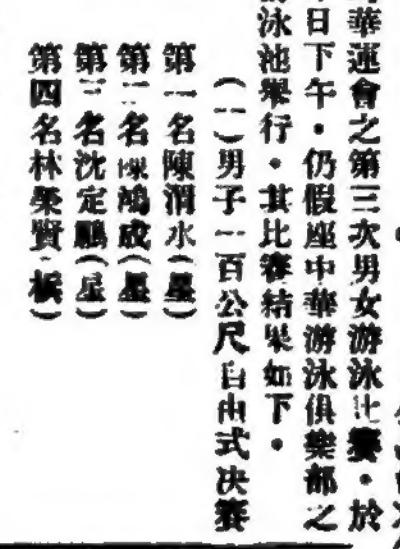 華運會之第三次男女游泳比賽・於
日下午・仍假座中華游泳俱樂部之
泳池舉行・其比賽結果如下・
(一)男子一百公尺自由式決賽
第一名陳渭水(星)
第二名陳鴻成(星)
第三名沈定鵬(星)
第四名林榮賢(檳)